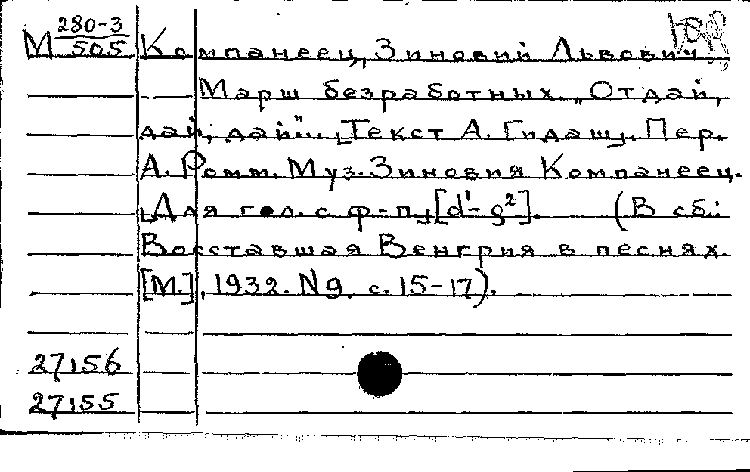 М 280-3/505 Компанеец, Зиновий Львович
Марш безработных. „Отдай,
дай, дай"... [Текст А. Гидаш]. Пер.
А. Ромм. Муз. Зиновия Компанеец.
[Для гол. с ф-п.] [d¹-g²]. (В сб.:
Восставшая Венгрия в песнях.
[М.], 1932. N9. с. 15-17).
27156
27155